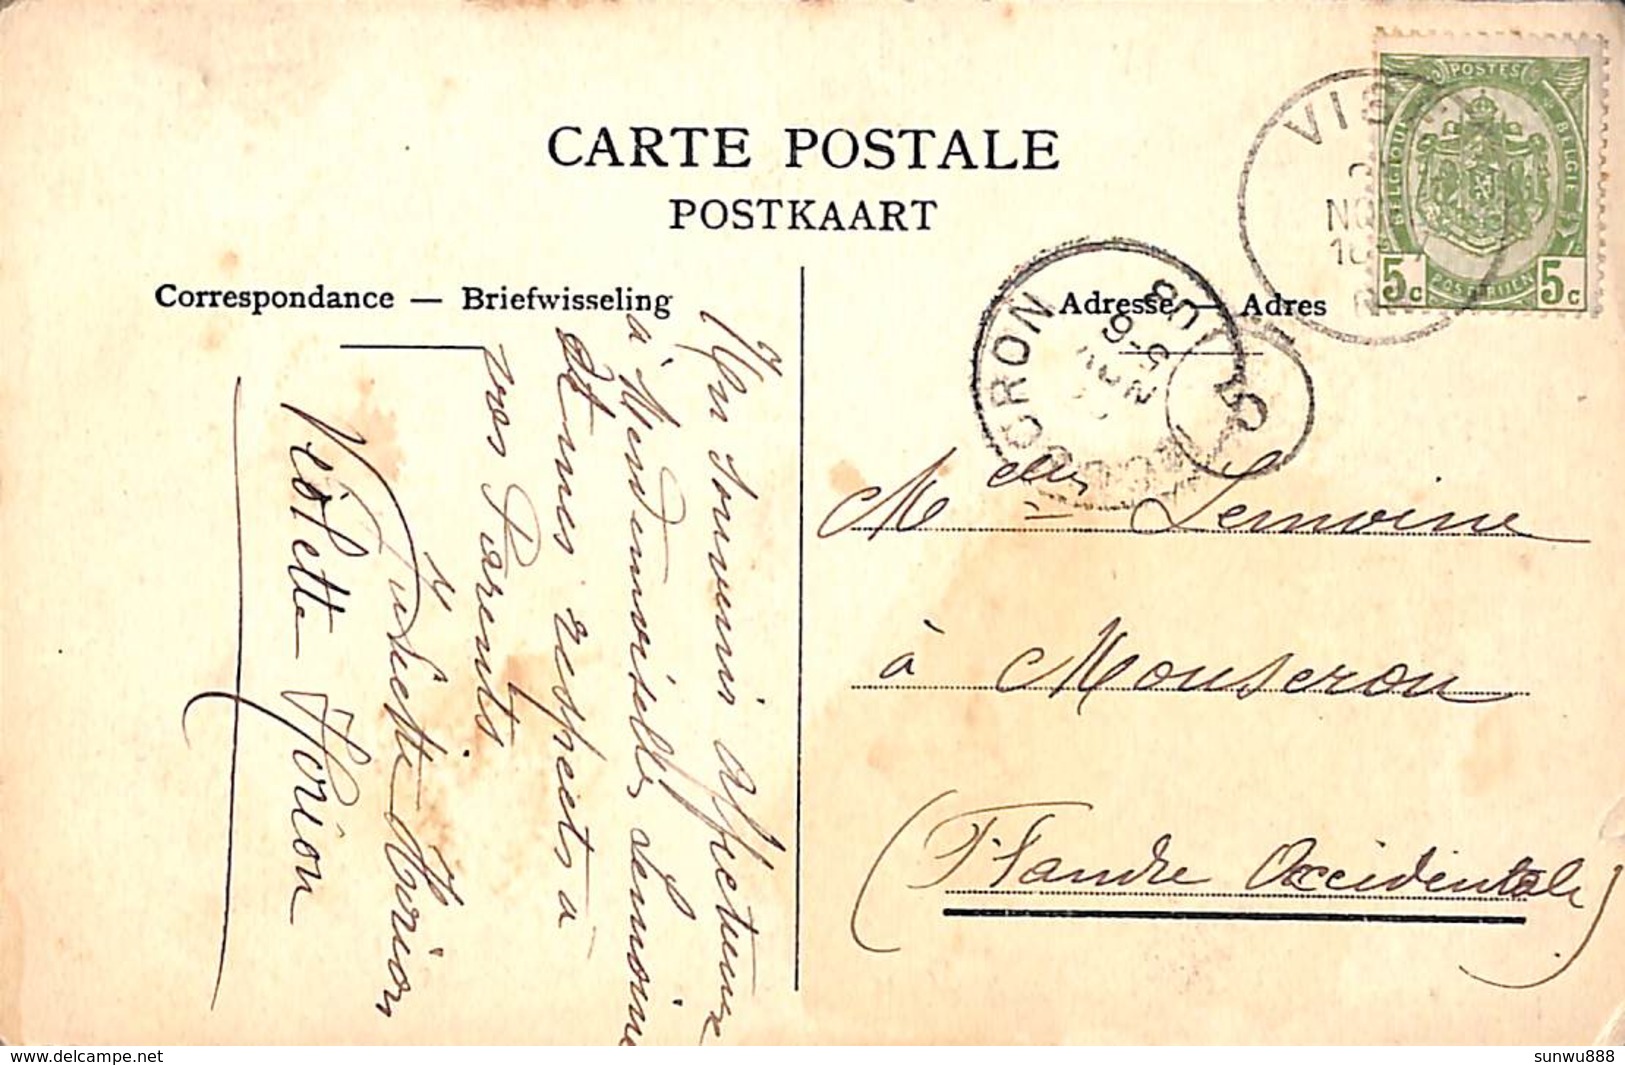 CARTE POSTALE
POSTKAART
Correspondance — Briefwisseling
Adresse — Adres
POSTES
BELGIQUE
BELGIE
POSTERIJEN
5c 5c
VISÉ
NO
CRON
5-6
NOV
08
Un souvenir affectueux
à Mesdemoiselles Lemoine
et mes respects à
vos Parents
Juliette Horion
Violette Horion
Melles Lemoine
à Mouscron
(Flandre Occidentale)
delcampe.net
sunwu888